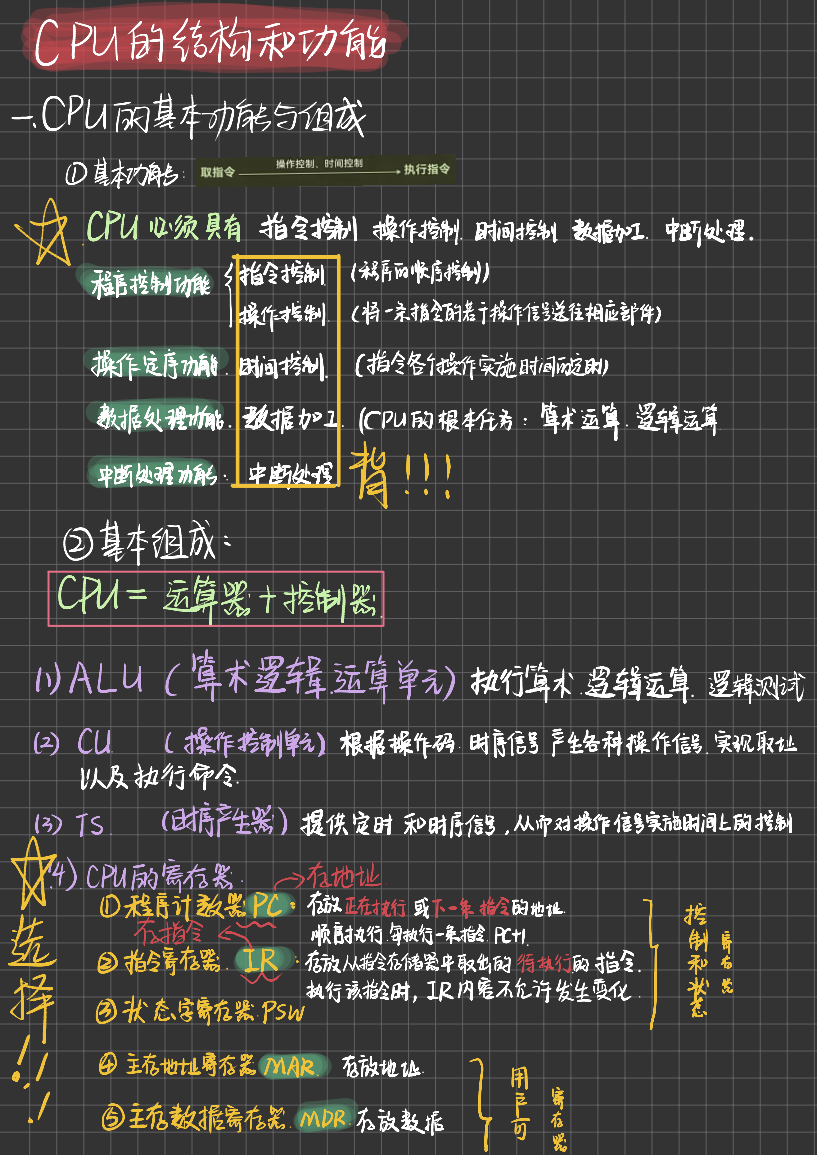 CPU的结构和功能
一.CPU的基本功能与组成
①基本功能:
取指令 操作控制、时间控制 执行指令
CPU必须具有 指令控制 操作控制. 时间控制 数据加工. 中断处理.
程序控制功能 指令控制 (程序的顺序控制)
操作控制. (将一条指令的若干操作信号送往相应部件)
操作定序功能. 时间控制. (指令各个操作实施时间的定时)
数据处理功能. 数据加工. (CPU的根本任务: 算术运算. 逻辑运算
中断处理功能: 中断处理
背!!!
②基本组成:
CPU = 运算器+控制器.
(1) ALU (算术逻辑.运算单元) 执行算术.逻辑运算. 逻辑测试
(2) CU (操作控制单元) 根据操作码.时序信号 产生各种操作信号.实现取址
以及执行命令.
(3) TS (时序产生器) 提供定时 和时序信号,从而对操作信号实施时间上的控制
(4) CPU的寄存器. 存地址
①程序计数器PC: 存放正在执行 或下一条指令的地址.
存指令 顺序执行.每执行一条指令.PC+1.
②指令寄存器. IR: 存放从指令存储器中取出的待执行的指令.
执行该指令时, IR内容不允许发生变化.
③状态字寄存器.PSW
控制和状态 寄存器
④主存地址寄存器MAR. 存放地址.
⑤主存数据寄存器.MDR.存放数据
用户可 寄存器
选择!!!